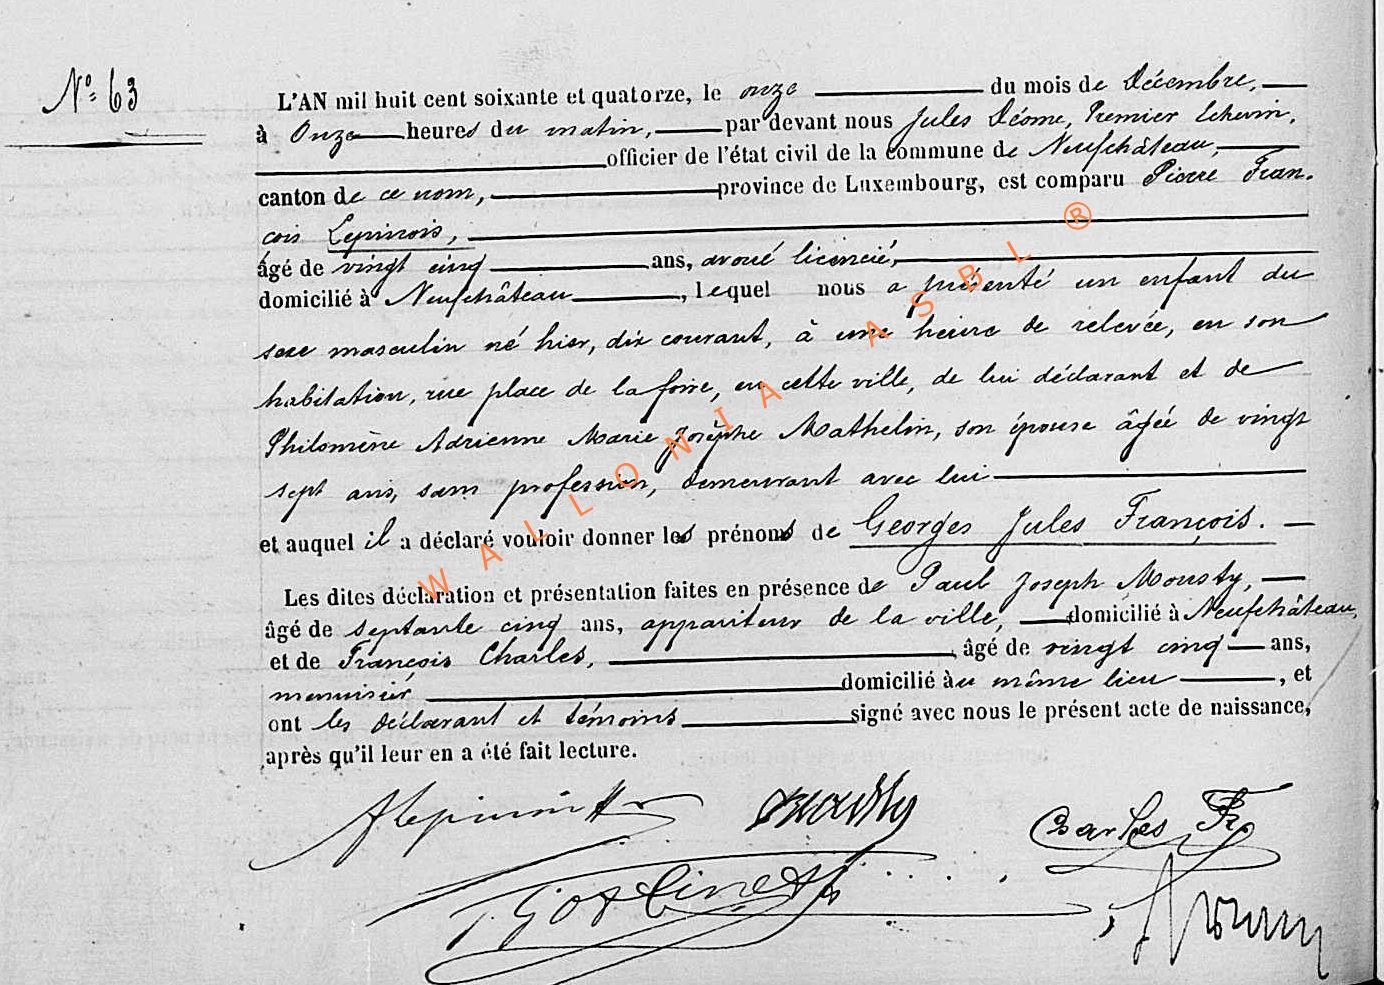 Nº 63
L'AN mil huit cent soixante et quatorze, le onze du mois de Décembre,
à Onze heures du matin, par devant nous Jules Déome, Premier Echevin,
officier de l'état civil de la commune de Neufchâteau,
canton de ce nom, province de Luxembourg, est comparu Pierre Fran-
cois Lepinois,
âgé de vingt cinq ans, avoué licencié,
domicilié à Neufchâteau, lequel nous a présenté un enfant du
sexe masculin né hier, dix courant, à une heure de relevée, en son
habitation, rue place de la foire, en cette ville, de lui déclarant et de
Philomène Adrienne Marie Josèphe Mathelin, son épouse âgée de vingt
sept ans, sans profession, demeurant avec lui
et auquel il a déclaré vouloir donner les prénoms de Georges Jules François.
Les dites déclaration et présentation faites en présence de Paul Joseph Mousty,
âgé de septante cinq ans, appariteur de la ville, domicilié à Neufchâteau,
et de François Charles, âgé de vingt cinq ans,
menuisier domicilié au même lieu, et
ont les déclarant et témoins signé avec nous le présent acte de naissance,
après qu'il leur en a été fait lecture.
Mousty
Charles Fr
WALLONIA ASBL ®